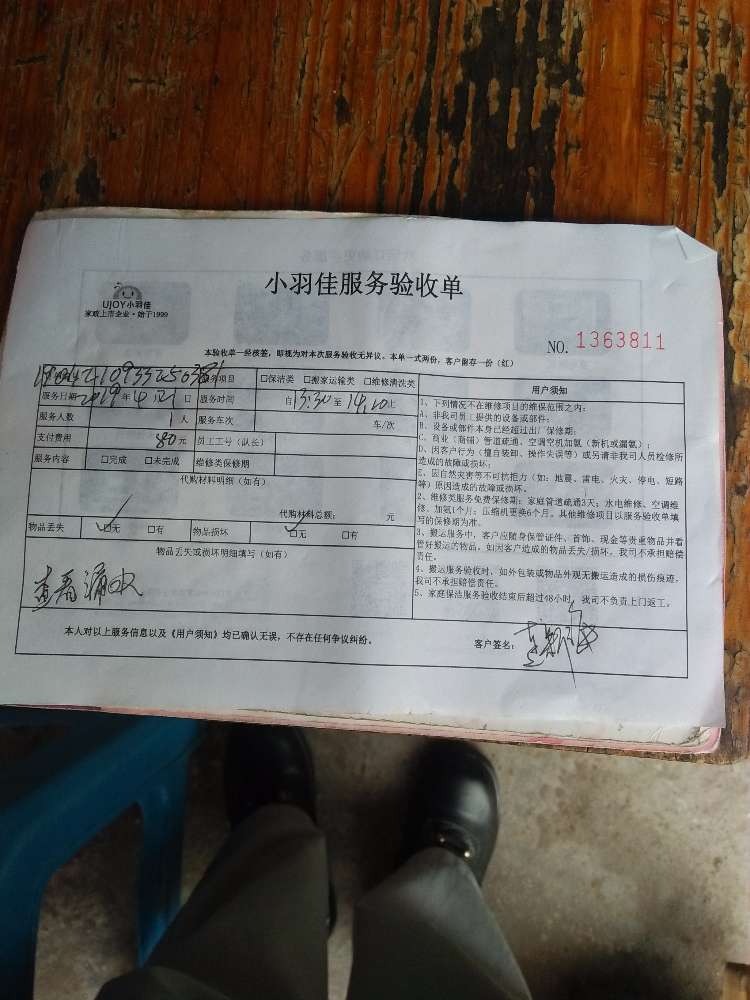 小羽佳服务验收单
UJOY小羽佳
家政上市企业·始于1999
NO. 1363811
本验收单一经核签，即视为对本次服务验收无异议。本单一式两份，客户留存一份（红）
务项目 □保洁类 □搬家运输类 □维修清洗类
服务日期 2019 年 4 日 服务时间 自 13:30 至 14:20 止
服务人数 1 人 服务车次 车/次
支付费用 80 元 员工工号（队长）
服务内容 □完成 □未完成 维修类保修期
代购材料明细（如有）
代购材料总额： 元
物品丢失 ☑无 □有 物品损坏 ☑无 □有
物品丢失或损坏明细填写（如有）
查看漏水
用户须知
1、下列情况不在维修项目的维保范围之内：
A、非我司员工提供的设备或部件；
B、设备或部件本身已经超过出厂保修期；
C、商业（商铺）管道疏通、空调空机加氟（新机或漏氟）；
D、因客户行为（擅自装卸、操作失误等）或另请非我司人员检修所
造成的故障或损坏；
E、因自然灾害等不可抗拒力（如：地震、雷电、火灾、停电、短路
等）原因造成的故障或损坏。
2、维修类服务免费保修期：家庭管道疏通3天；水电维修、空调维
修、加氟1个月；压缩机更换6个月。其他维修项目以服务验收单填
写的保修期为准。
3、搬运服务中，客户应随身保管证件、首饰、现金等贵重物品并看
管好搬运的物品，如因客户造成的物品丢失/损坏，我司不承担赔偿
责任。
4、搬运服务验收时，如外包装或物品外观无搬运造成的损伤痕迹，
我司不承担赔偿责任。
5、家庭保洁服务验收结束后超过48小时，我司不负责上门返工。
本人对以上服务信息以及《用户须知》均已确认无误，不存在任何争议纠纷。 客户签名：